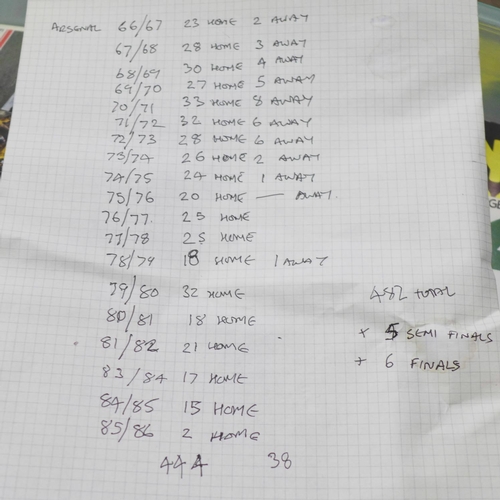 ARSENAL 66/67 23 HOME 2 AWAY
67/68 28 HOME 3 AWAY
68/69 30 HOME 4 AWAY
69/70 27 HOME 5 AWAY
70/71 33 HOME 8 AWAY
71/72 32 HOME 6 AWAY
72/73 28 HOME 6 AWAY
73/74 26 HOME 2 AWAY
74/75 24 HOME 1 AWAY
75/76 20 HOME — AWAY.
76/77. 25 HOME
77/78 25 HOME
78/79 18 HOME 1 AWAY
79/80 32 HOME
482 TOTAL
80/81 18 HOME
+ 5 SEMI FINALS
81/82 21 HOME
+ 6 FINALS
83/84 17 HOME
84/85 15 HOME
85/86 2 HOME
444 38